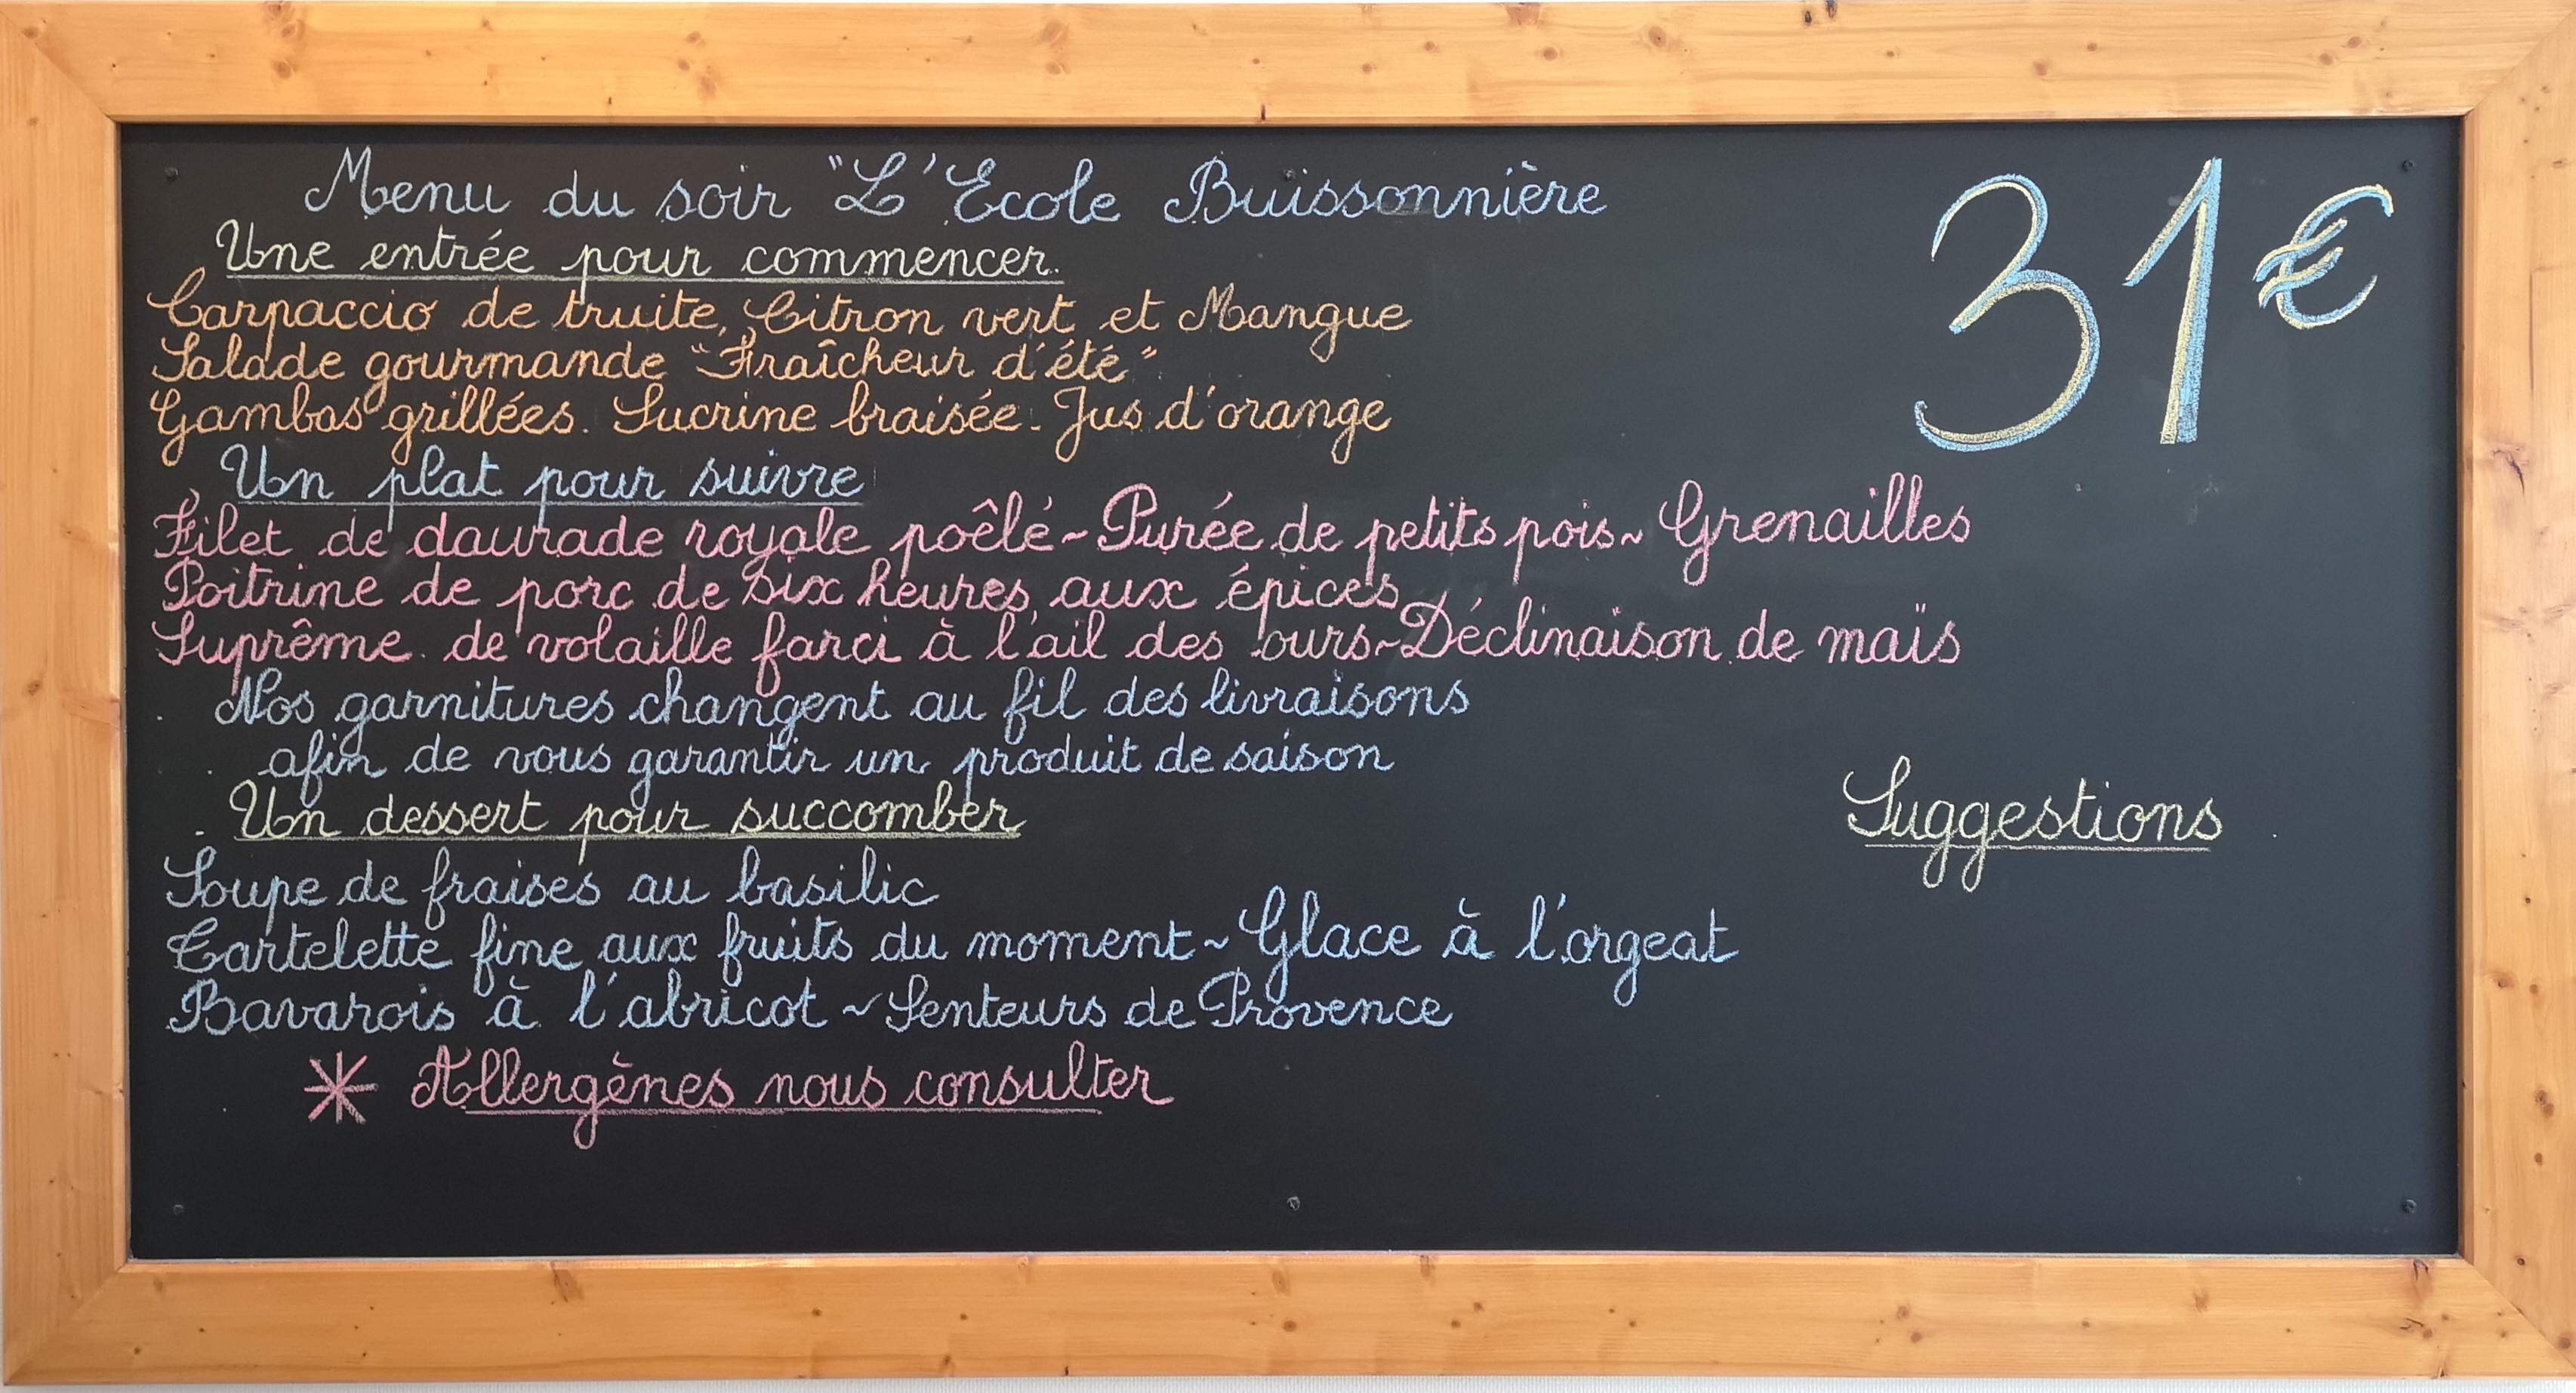 Menu du soir "L'Ecole Buissonnière
31€
Une entrée pour commencer.
Carpaccio de truite, Citron vert et Mangue
Salade gourmande "Fraîcheur d'été"
Gambas grillées. Sucrine braisée. Jus d'orange
Un plat pour suivre
Filet de daurade royale poêlé ~ Purée de petits pois ~ Grenailles
Poitrine de porc de six heures aux épices
Suprême de volaille farci à l'ail des ours ~ Déclinaison de maïs
Nos garnitures changent au fil des livraisons
afin de vous garantir un produit de saison
Un dessert pour succomber
Soupe de fraises au basilic
Tartelette fine aux fruits du moment ~ Glace à l'orgeat
Bavarois à l'abricot ~ Senteurs de Provence
* Allergènes nous consulter
Suggestions